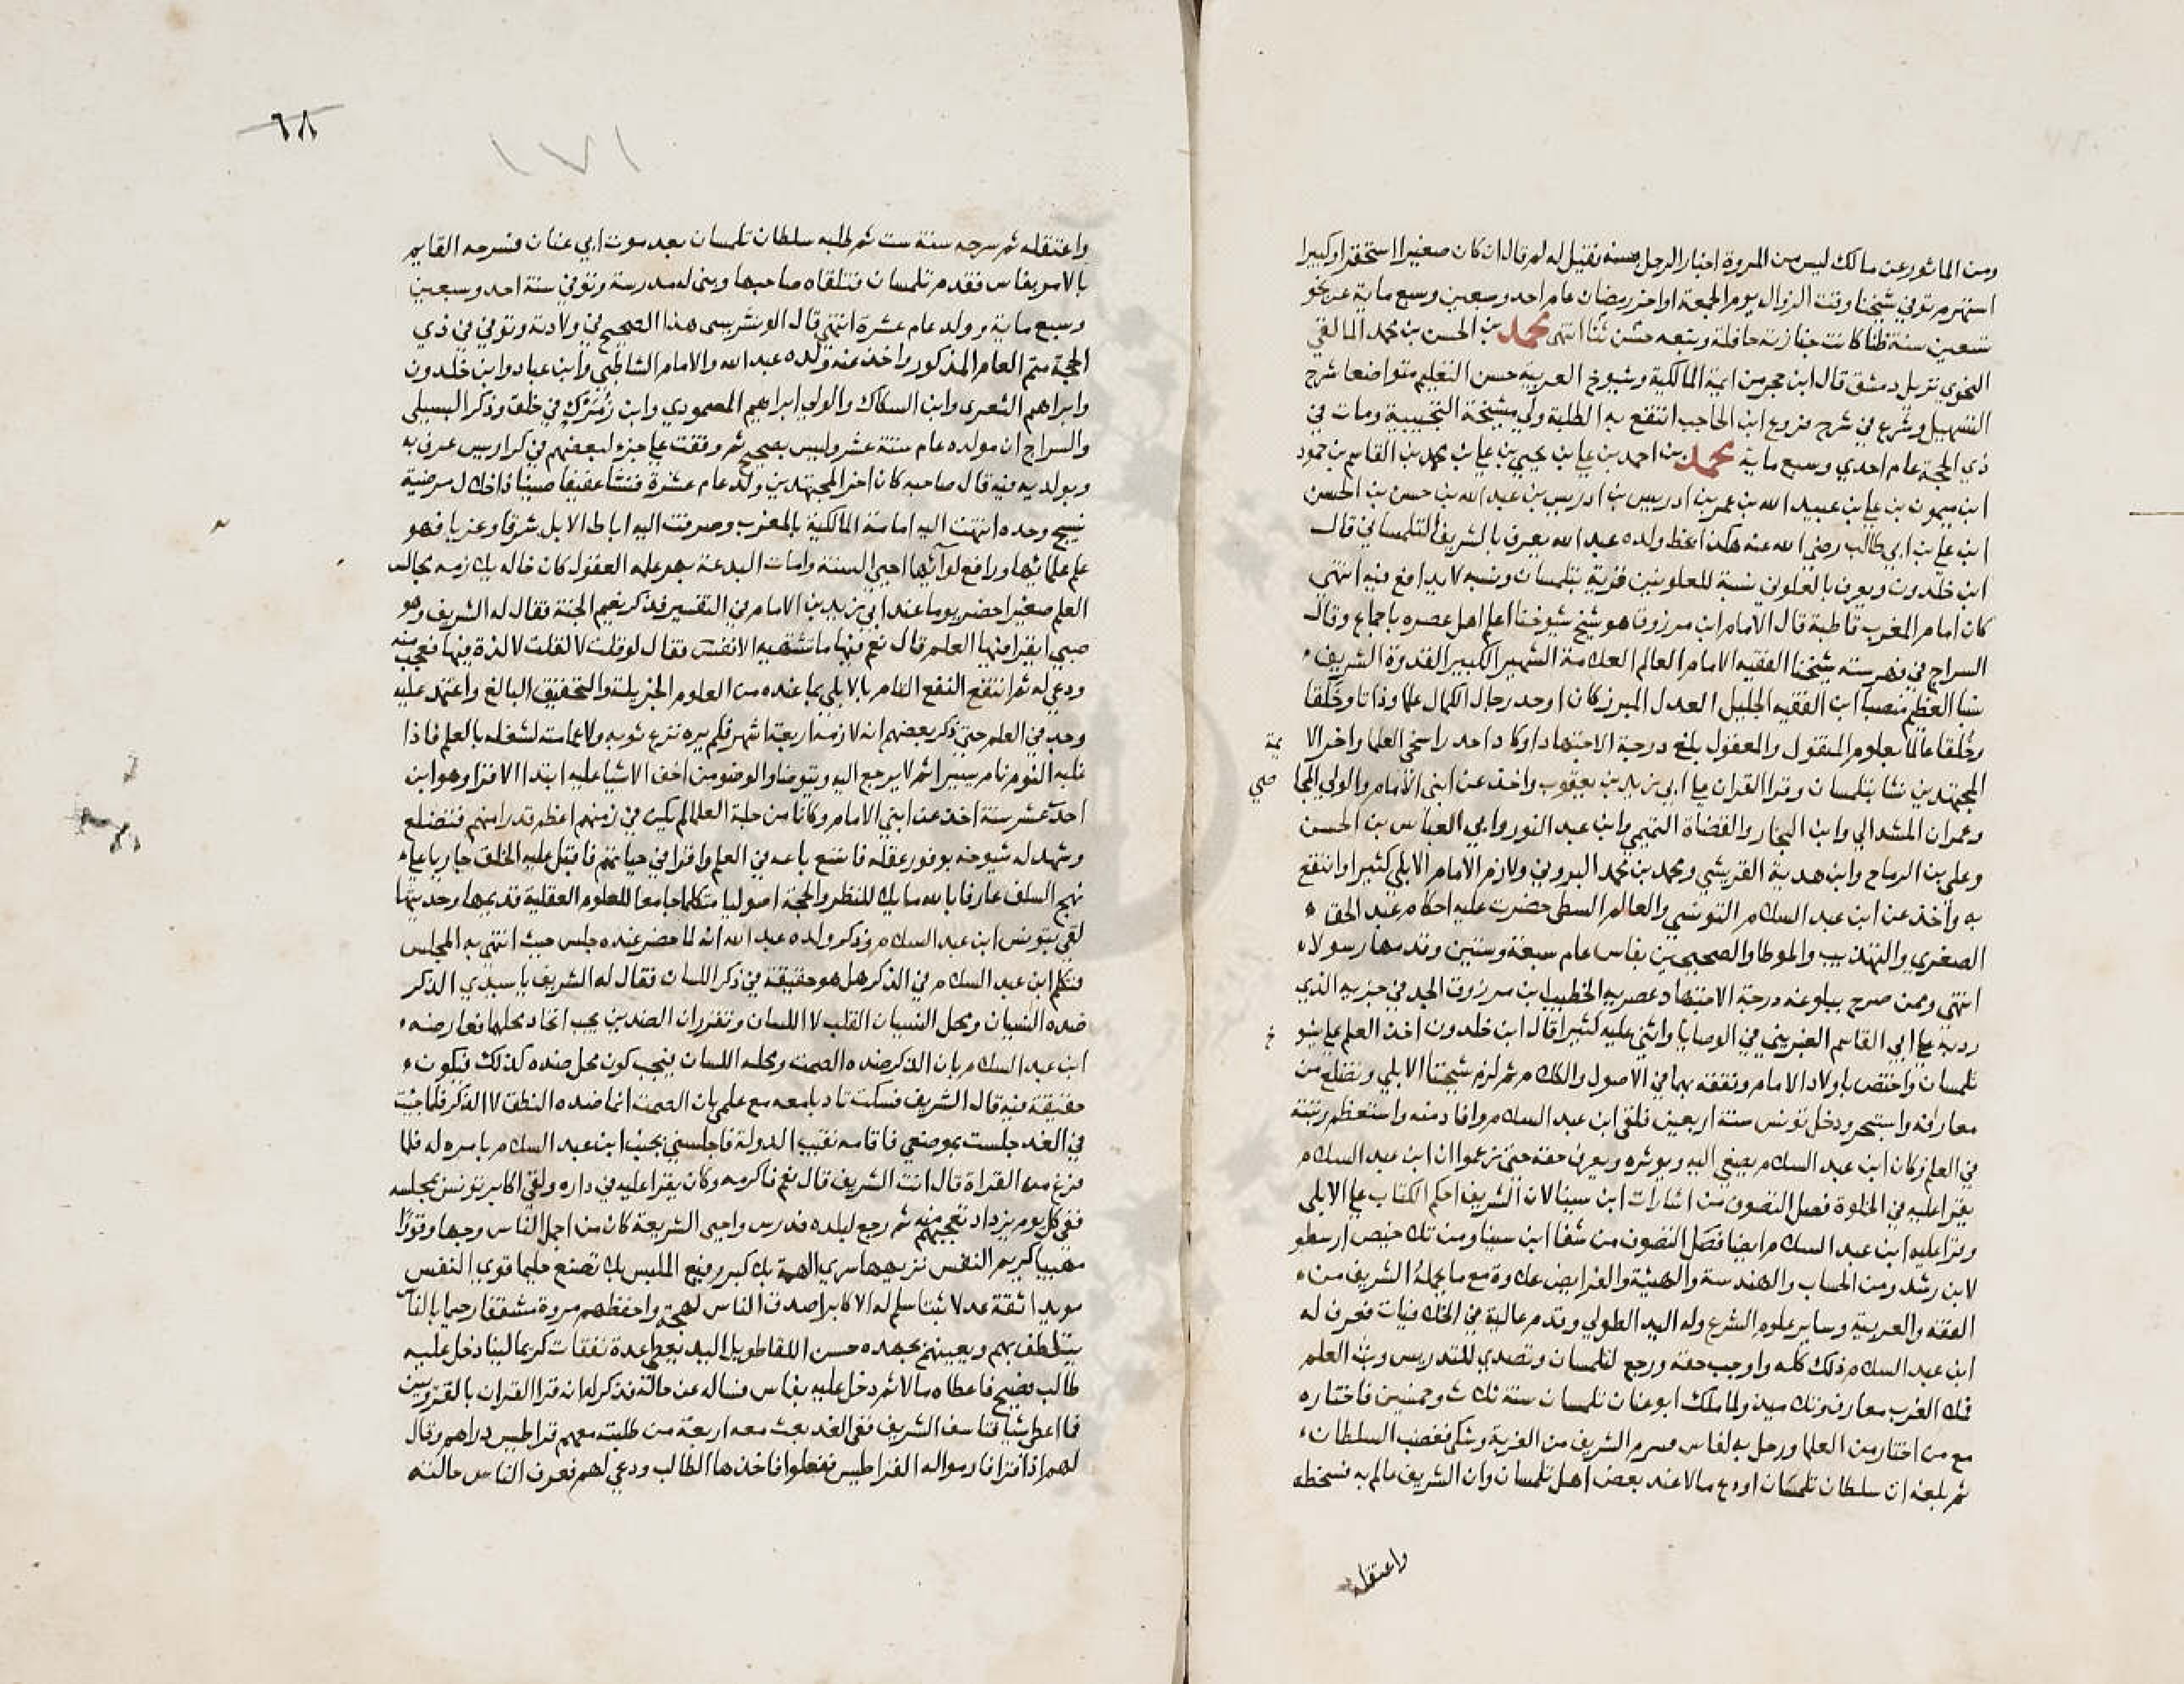 ومن الماثور عن مالك ليس من المروة اخبار الرجل بسنه فقيل له لم قال ان كان صغيرا استحقر او كبيرا
استهرم توفي شيخنا وقت الزوال يوم الجمعة اواخر رمضان عام احد وسبعين وسبع ماية عن نحو
تسعين سنة ظنا كانت جنازته حافلة وتبعه حسن ثنا انتهى محمد بن الحسن بن محمد المالقي
النحوي نزيل دمشق قال ابن حجر من ايمة المالكية وشيوخ العربية حسن التعليم متواضعا شرح
التسهيل وشرع في شرح فروع ابن الحاجب انتفع به الطلبة ولي مشيخة النجيبية ومات في
ذي الحجة عام احدي وسبع ماية محمد بن احمد بن علي بن يحيي بن علي بن محمد بن القاسم بن حمود
ابن ميمون بن علي بن عبيد الله بن عمر بن ادريس بن ادريس بن عبد الله بن حسن بن الحسن
ابن علي بن ابي طالب رضي الله عنه هكذا بخط ولده عبد الله يعرف بالشريف التلمساني قال
ابن خلدون ويعرف بالعلوني نسبة للعلويين قرية بتلمسان ونسبه لا يدافع فيه انتهي
كان امام المغرب قاطبة قال الامام ابن مرزوق هو شيخ شيوخنا اعلم اهل عصره باجماع وقال
السراج في فهرسته شيخنا الفقيه الامام العالم العلامة الشهير الكبير القدوة الشريف
نسبا العظيم منصبا ابن الفقيه الجليل العدل المبرز كان اوحد رجال الكمال علما وذاتا وخلقا
وخُلقا عالما بعلوم المنقول والمعقول بلغ درجة الاجتهاد او كاد احد راسخي العلما واخر الا يمة
المجتهدين نشا بتلمسان وقرا القران علي ابي زيد بن يعقوب واخذ عن ابني الامام والولي المجا صي
وعمران المشدالي وابن النجار والقضاة التميمي وابن عبد النور وابي العباس بن الحسن
وعلي بن الرماح وابن هدية القريشي ومحمد بن محمد البروني ولازم الامام الابلي كثيرا وانتفع
به واخذ عن ابن عبد السلام التونسي والعالم السطي حضرت عليه احكام عبد الحق
الصغري والتهذيب والموطا والصحيحين بفاس عام سبعة وستين وقدمها رسولا
انتهي وممن صرح ببلوغه درجة الاجتهاد عصريه الخطيب ابن مرزوق الجد في جزيه الذي
رد به علي ابي القاسم الغبريني في الوصايا واثني عليه كثيرا قال ابن خلدون اخذ العلم علي شيو خ
تلمسان واختص باولاد الامام وتفقه بهما في الاصول والكلام ثم لزم شيخنا الابلي وتضلع من
معارفه واستبحر ودخل تونس سنة اربعين فلقي ابن عبد السلام وافاد منه واستعظم رتبته
في العلم وكان ابن عبد السلام يصغي اليه ويوثره ويعرف حقه حتي زعموا ان ابن عبد السلام
يقرا عليه في الخلوة فصل التصوف من اشارات ابن سينا لان الشريف احكم الكتاب علي الابلي
وقرا عليه ابن عبد السلام ايضا فصل التصوف من شفا ابن سينا ومن تلاخيص ارسطو
لابن رشد ومن الحساب والهندسة والهيئة والفرايض علاوة مع ما يحمله الشريف من
الفقه والعربية وساير علوم الشرع وله اليد الطولي وقدم عالية في الخلافيات فعرف له
ابن عبد السلام ذلك كله واوجب حقه ورجع لتلمسان وتصدي للتدريس وبث العلم
فملا الغرب معارف وتلاميذ ولما ملك ابو عنان تلمسان سنة ثلاث وخمسين فاختاره
مع من اختار من العلما ورحل به لفاس فسرم الشريف من الغربة وشكي فغضب السلطان
ثم بلغه ان سلطان تلمسان اودع مالا عند بعض اهل تلمسان وان الشريف عالم به فسخطه
واعتقله
٦٨
١٧١
واعتقله ثم سرحه سنة ست ثم طلبه سلطان تلمسان بعد موت ابي عنان فسرحه القايم
بالامر بفاس فقدم تلمسان فتلقاه صاحبها وبني له مدرسة وتوفي سنة احد وسبعين
وسبع ماية وولد عام عشرة انتهي قال الونشريسي هذا الصحيح في ولادته وتوفي في ذي
الحجة متم العام المذكور واخذ عنه ولده عبد الله والامام الشاطبي وابن عباد وابن خلدون
وابراهيم الثغري وابن السكاك والولي ابراهيم المصمودي وابن زُمْرَك في خلق وذكر البسيلي
والسراج ان مولده عام ستة عشر وليس بصحيح ثم وقفت علي جزء لبعضهم في كراريس عرف به
وبولديه فيه قال صاحبه كان اخر المجتهدين ولد عام عشرة فنشا عفيفا صينا ذا خلال مرضية
نسيج وحده انتهت اليه امامة المالكية بالمغرب وصرفت اليه اباط الابل شرقا وغربا فهو
علم علمائها ورافع لوائها احيي السنة وامات البدعة بهر علمه العقول كان خاله يلازمه مجالس
العلم صغيرا حضر يوما عند ابي زيد بن الامام في التفسير فذكر نعيم الجنة فقال له الشريف وهو
صبي ايقرا فيها العلم قال نعم فيها ما تشتهيه الانفس فقال لو قلت لا لقلت لا لذة فيها فعجب منه
ودعي له ثم انتفع النفع التام بالابلي بما عنده من العلوم الجزيلة والتحقيق البالغ واعتمد عليه
وجد في العلم حتي ذكر بعضهم انه لازمه اربعة اشهر فلم يره نزع ثوبه ولا عمامته لشغله بالعلم فاذا
غلبه النوم نام يسيرا ثم لا يرجع اليه ويتوضا والوضو من اخف الاشيا عليه ابتدا الاقرا وهو ابن
احد عشر سنة اخذ عن ابني الامام وكانا من جلة العلما لم يكن في زمنهم اعظم قدرا منهم فتضلع
وشهد له شيوخه بوفور عقله فاتسع باعه في العلم واقرا في حياتهم فاقبل عليه الخلق جاريا علي
نهج السلف عارفا بالله مايلا للنظر والحجة اصوليا متكلما جامعا للعلوم العقلية قديمها وحديثها
لقي بتونس ابن عبد السلام وذكر ولده عبد الله انه لما حضر عنده جلس حيث انتهي به المجلس
فتكلم ابن عبد السلام في الذكر هل هو حقيقة في ذكر اللسان فقال له الشريف يا سيدي الذكر
ضده النسيان ومحل النسيان القلب لا اللسان وتقرر ان الضدين يجب اتحاد محلهما فعارضه
ابن عبد السلام بان الذكر ضده الصمت ومحله اللسان فيجب كون محل ضده كذلك فيكون
حقيقة فيه قال الشريف فسكت تادبا معه مع علمي بان الصمت انما ضده النطق لا الذكر فلما جيت
في الغد جلست بموضعي فاقامه نقيب الدولة فاجلسني بجنب ابن عبد السلام بامره له فلما
فرغ من القراة قال انت الشريف قال نعم فاكرمه وكان يقرا عليه في داره ولقي اكابر تونس بمجلسه
ففي كل يوم يزداد تعجبهم منه ثم رجع لبلده فدرس واحيي الشريعة كان من اجمل الناس وجها وقورًا
مهيبا كريم النفس نزيهها سري الهمة بلا كبر رفيع الملبس بلا تصنع حليما قوي النفس
مويدا ثقة عدلا ثبتا سلم له الاكابر اصدق الناس لهجة واحفظهم مروة مشفقا رحيما بالناس
يتلطف بهم ويعينهم بجهده حسن اللقا طويل اليد يعطي عدة نفقات كريما لينا دخل عليه
طالب بضيح فاعطاه مالا ثم دخل عليه بفاس فساله عن حاله فذكر له انه قرا القران بالقرويين
فما اعطي شيا فتاسف الشريف ففي الغد بعث معه اربعة من طلبته معهم قراطيس دراهم وقال
لهم اذا قرا فارموا له القراطيس ففعلوا فاخذها الطالب ودعي لهم فعرف الناس حالته